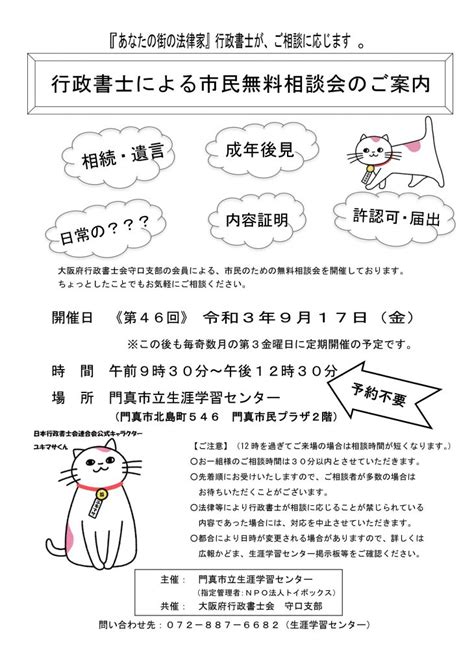 『あなたの街の法律家』行政書士が、ご相談に応じます 。
行政書士による市民無料相談会のご案内
相続・遺言
成年後見
日常の？？？
内容証明
許認可・届出
大阪府行政書士会守口支部の会員による、市民のための無料相談会を開催しております。
ちょっとしたことでもお気軽にご相談ください。
開催日 《第４６回》 令和３年９月１７日（金）
※この後も毎奇数月の第３金曜日に定期開催の予定です。
時 間 午前９時３０分～午後１２時３０分
予約不要
場 所 門真市立生涯学習センター
（門真市北島町５４６ 門真市民プラザ２階）
日本行政書士会連合会公式キャラクター
ユキマサくん
【ご注意】（１２時を過ぎてご来場の場合は相談時間が短くなります。）
○お一組様のご相談時間は３０分以内とさせていただきます。
○先着順にお受けいたしますので、ご相談者が多数の場合は
お待ちいただくことがございます。
○法律等により行政書士が相談に応じることが禁じられている
内容であった場合には、対応を中止させていただきます。
○都合により日時が変更される場合がありますので、詳しくは
広報かどま、生涯学習センター掲示板等をご確認ください。
主催： 門真市立生涯学習センター
（指定管理者：ＮＰＯ法人トイボックス）
共催： 大阪府行政書士会 守口支部
問い合わせ先：０７２－８８７－６６８２（生涯学習センター）